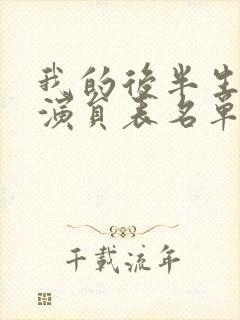 我的後半生
演員表名單
千載流年